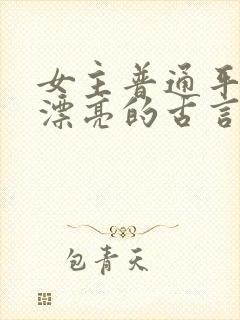 女主普通平
漂亮的古言
包青天